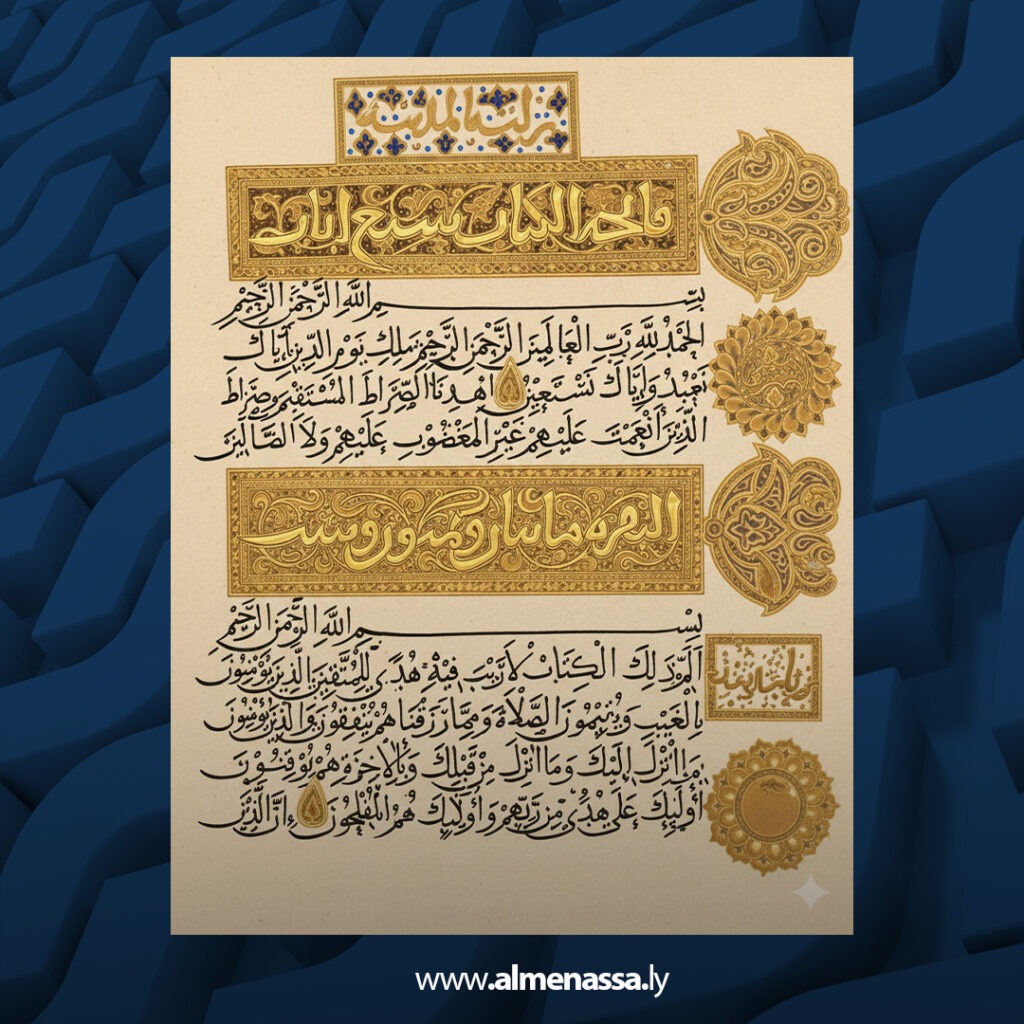 بِسْمِ اللَّهِ الرَّحْمَنِ الرَّحِيمِ
الحَمْدُ لِلَّهِ رَبِّ الْعَالَمِينَ الرَّحْمَنِ الرَّحِيمِ مَلِكِ يَوْمِ الدِّينِ إِيَّاكَ
نَعْبُدُ وَإِيَّاكَ نَسْتَعِينُ اهْدِنَا الصِّرَاطَ المُسْتَقِيمَ صِرَاطَ
الَّذِينَ أَنْعَمْتَ عَلَيْهِمْ غَيْرِ المَغْضُوبِ عَلَيْهِمْ وَلَا الضَّالِّينَ
البقره
بِسْمِ اللَّهِ الرَّحْمَنِ الرَّحِيمِ
الْكِتَابُ لَا رَيْبَ فِيهِ هُدًى لِلْمُتَّقِينَ الَّذِينَ
بِالْغَيْبِ الصَّلَاةَ وَمِمَّا رَزَقْنَاهُمْ
أُنْزِلَ إِلَيْكَ وَمَا أُنْزِلَ مِنْ قَبْلِكَ وَبِالآخِرَةِ هُمْ يُوقِنُونَ
أُولَئِكَ عَلَى هُدًى مِنْ رَبِّهِمْ وَأُولَئِكَ هُمُ المُفْلِحُونَ إِنَّ الَّذِينَ
www.almenassa.ly